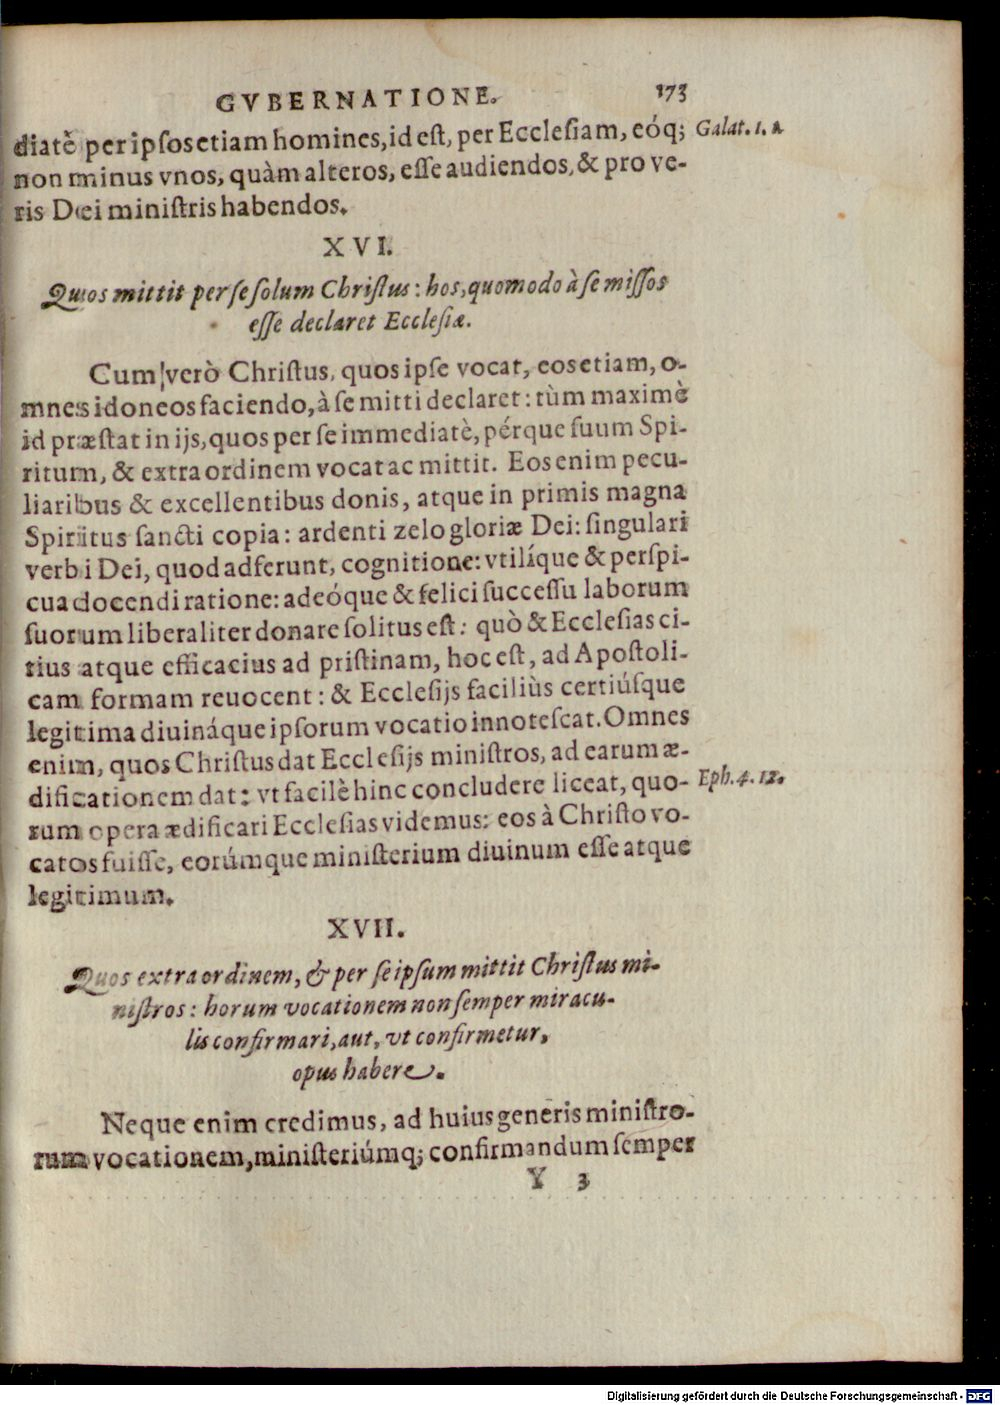 GVBERNATIONE. 173
diatè per ipsos etiam homines, id est, per Ecclesiam, eóq; Galat. 1. a
non minus vnos, quàm alteros, esse audiendos, & pro ve-
ris Dei ministris habendos.
XVI.
Quos mittit per se solum Christus: hos, quomodo à se missos
esse declaret Ecclesiæ.
Cum verò Christus, quos ipse vocat, eos etiam, o-
mnes idoneos faciendo, à se mitti declaret: tùm maximè
id præstat in ijs, quos per se immediatè, pérque suum Spi-
ritum, & extra ordinem vocat ac mittit. Eos enim pecu-
liaribus & excellentibus donis, atque in primis magna
Spiritus sancti copia: ardenti zelo gloriæ Dei: singulari
verbi Dei, quod adferunt, cognitione: vtilíque & perspi-
cua docendi ratione: adeóque & felici successu laborum
suorum liberaliter donare solitus est: quò & Ecclesias ci-
tius atque efficacius ad pristinam, hoc est, ad Apostoli-
cam formam reuocent: & Ecclesijs faciliùs certiúsque
legitima diuináque ipsorum vocatio innotescat. Omnes
enim, quos Christus dat Ecclesijs ministros, ad earum æ-
dificationem dat: vt facilè hinc concludere liceat, quo- Eph. 4. 12.
rum opera ædificari Ecclesias videmus: eos à Christo vo-
catos fuisse, eorúmque ministerium diuinum esse atque
legitimum.
XVII.
Quos extra ordinem, & per seipsum mittit Christus mi-
nistros: horum vocationem non semper miracu-
lis confirmari, aut, vt confirmetur,
opus habere.
Neque enim credimus, ad huius generis ministro-
rum vocationem, ministeriúmq; confirmandum semper
Y 3
Digitalisierung gefördert durch die Deutsche Forschungsgemeinschaft - DFG